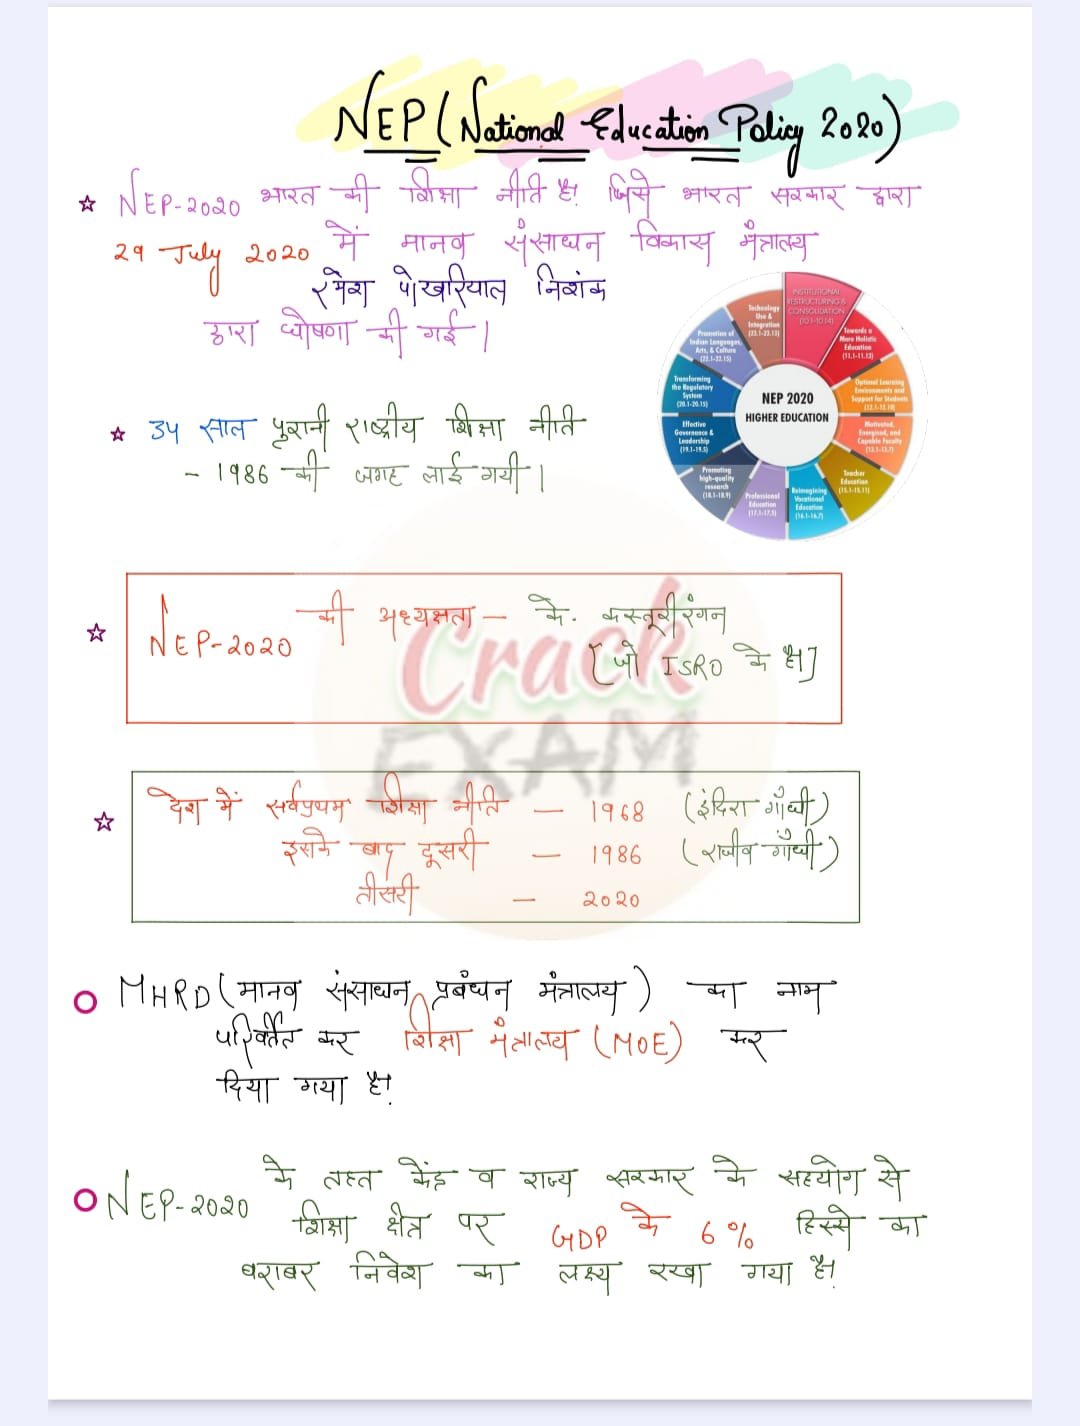 NEP (National Education Policy 2020)
☆ NEP-2020 भारत की शिक्षा नीति है। जिसे भारत सरकार द्वारा
29 July 2020 में मानव संसाधन विकास मंत्रालय
रमेश पोखरियाल निशंक
द्वारा घोषणा की गई।
INSTITUTIONAL
RESTRUCTURING &
CONSOLIDATION
(10.1-10.14)
Towards a
More Holistic
Education
(11.1-11.13)
Optimal Learning
Environments and
Support for Students
(12.1-12.10)
Motivated,
Energised, and
Capable Faculty
(13.1-13.7)
Teacher
Education
(15.1-15.11)
Reimagining
Vocational
Education
(16.1-16.7)
Professional
Education
(17.1-17.5)
Promoting
high-quality
research
(18.1-18.9)
Effective
Governance &
Leadership
(19.1-19.5)
Transforming
the Regulatory
System
(20.1-20.15)
Promotion of
Indian Languages,
Arts, & Culture
(22.1-22.15)
Technology
Use &
Integration
(23.1-23.13)
NEP 2020
HIGHER EDUCATION
☆ 34 साल पुरानी राष्ट्रीय शिक्षा नीति
- 1986 की जगह लाई गयी।
☆ NEP-2020 की अध्यक्षता – के. कस्तूरीरंगन
[जो ISRO के है।]
Crack
EXAM
☆ देश में सर्वप्रथम शिक्षा नीति – 1968 (इंदिरा गाँधी)
इसके बाद दूसरी – 1986 (राजीव गाँधी)
तीसरी – 2020
MHRD (मानव संसाधन प्रबंधन मंत्रालय) का नाम
परिवर्तित कर शिक्षा मंत्रालय (MOE) कर
दिया गया है।
NEP-2020 के तहत केंद्र व राज्य सरकार के सहयोग से
शिक्षा क्षेत्र पर GDP के 6% हिस्से का
बराबर निवेश का लक्ष्य रखा गया है।